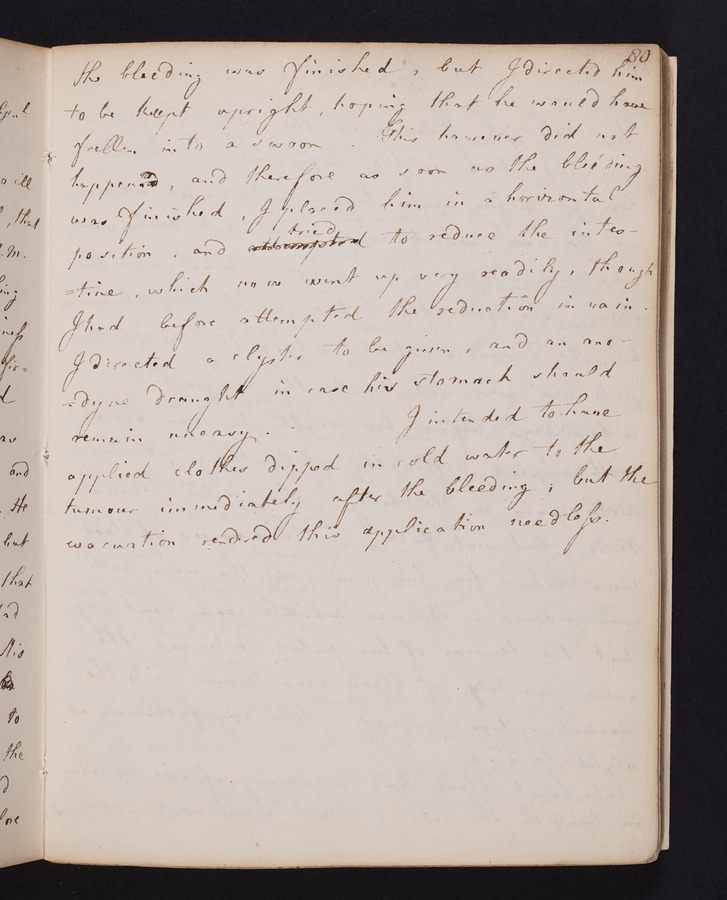 80
the bleeding was finished, but I directed him
to be keept upright, hoping that he would have
fallen into a swoon. This however did not
happen, and therefore as soon as the bleeding
was finished, I placed him in a horizontal
position, and attempted tried to reduce the intes-
=tine, which now went up very readily, though
I had before attempted the reduction in vain.
I directed a clyster to be given, and an ano-
=dyne draught in case his stomach should
remain uneasy. I intended to have
applied clothes dipped in cold water to the
tumour immediately after the bleeding; but the
evacuation rendered this application needless.
ill
, that
M.
and
He
but
that
His
to
the